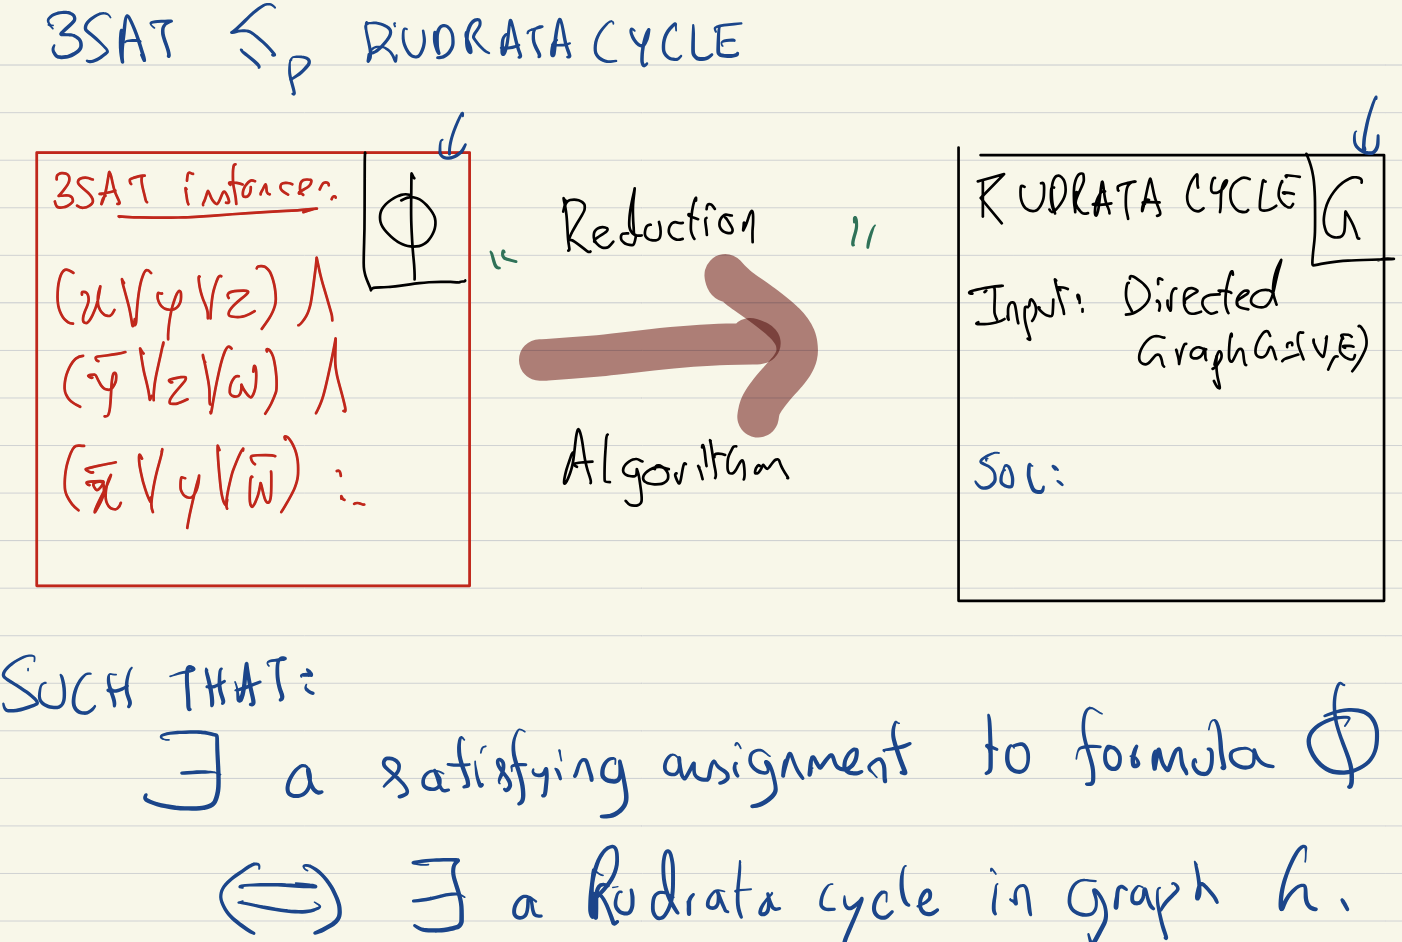 3SAT ≤p RUDRATA CYCLE
3SAT instance: Φ
(x ∨ y ∨ z) ∧
(ȳ ∨ z ∨ ω) ∧
(x̄ ∨ y ∨ ω̄) :.
" Reduction "
Algorithm
RUDRATA CYCLE G
Input: Directed
Graph G=(V,E)
Sol:
SUCH THAT:
∃ a satisfying assignment to formula Φ
⟺ ∃ a Rudrata cycle in graph G.